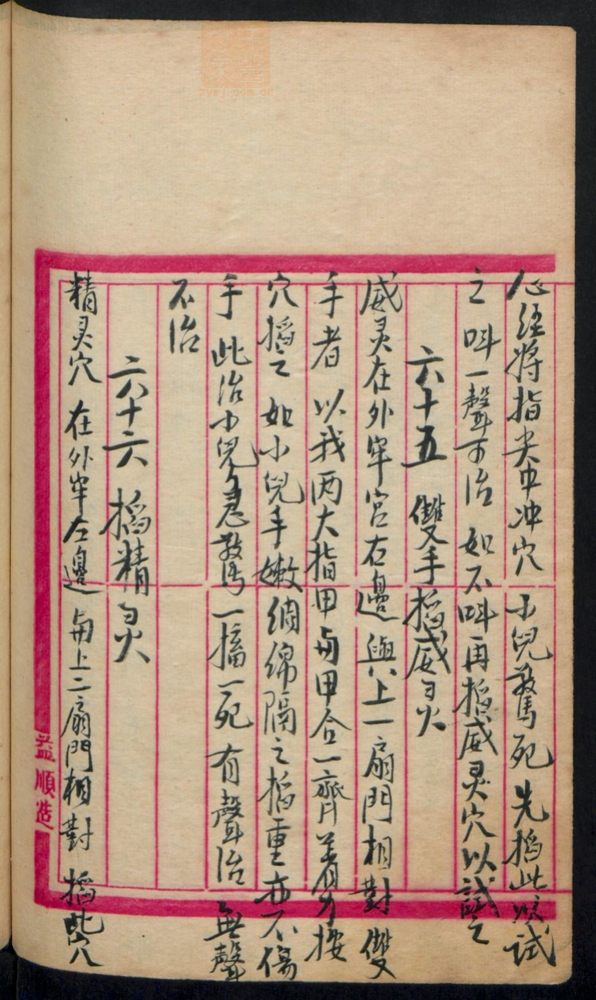 心经将指尖中冲穴 小兒驚死 先掐此以試
之 叫一聲可治 如不叫再掐威灵穴以試之
六十五 雙手掐威灵
威灵在外牢宮右邊 與上一扇門相對 雙
手者 以我两大指甲与甲合一齊着力按
穴掐之 如小兒手嫩 绸绵隔之掐重亦不傷
手 此治小兒急驚 一掐一死 有聲治 無聲
不治
六十六 掐精灵
精灵穴 在外牢左邊 与上二扇門相對 掐此穴
益順造